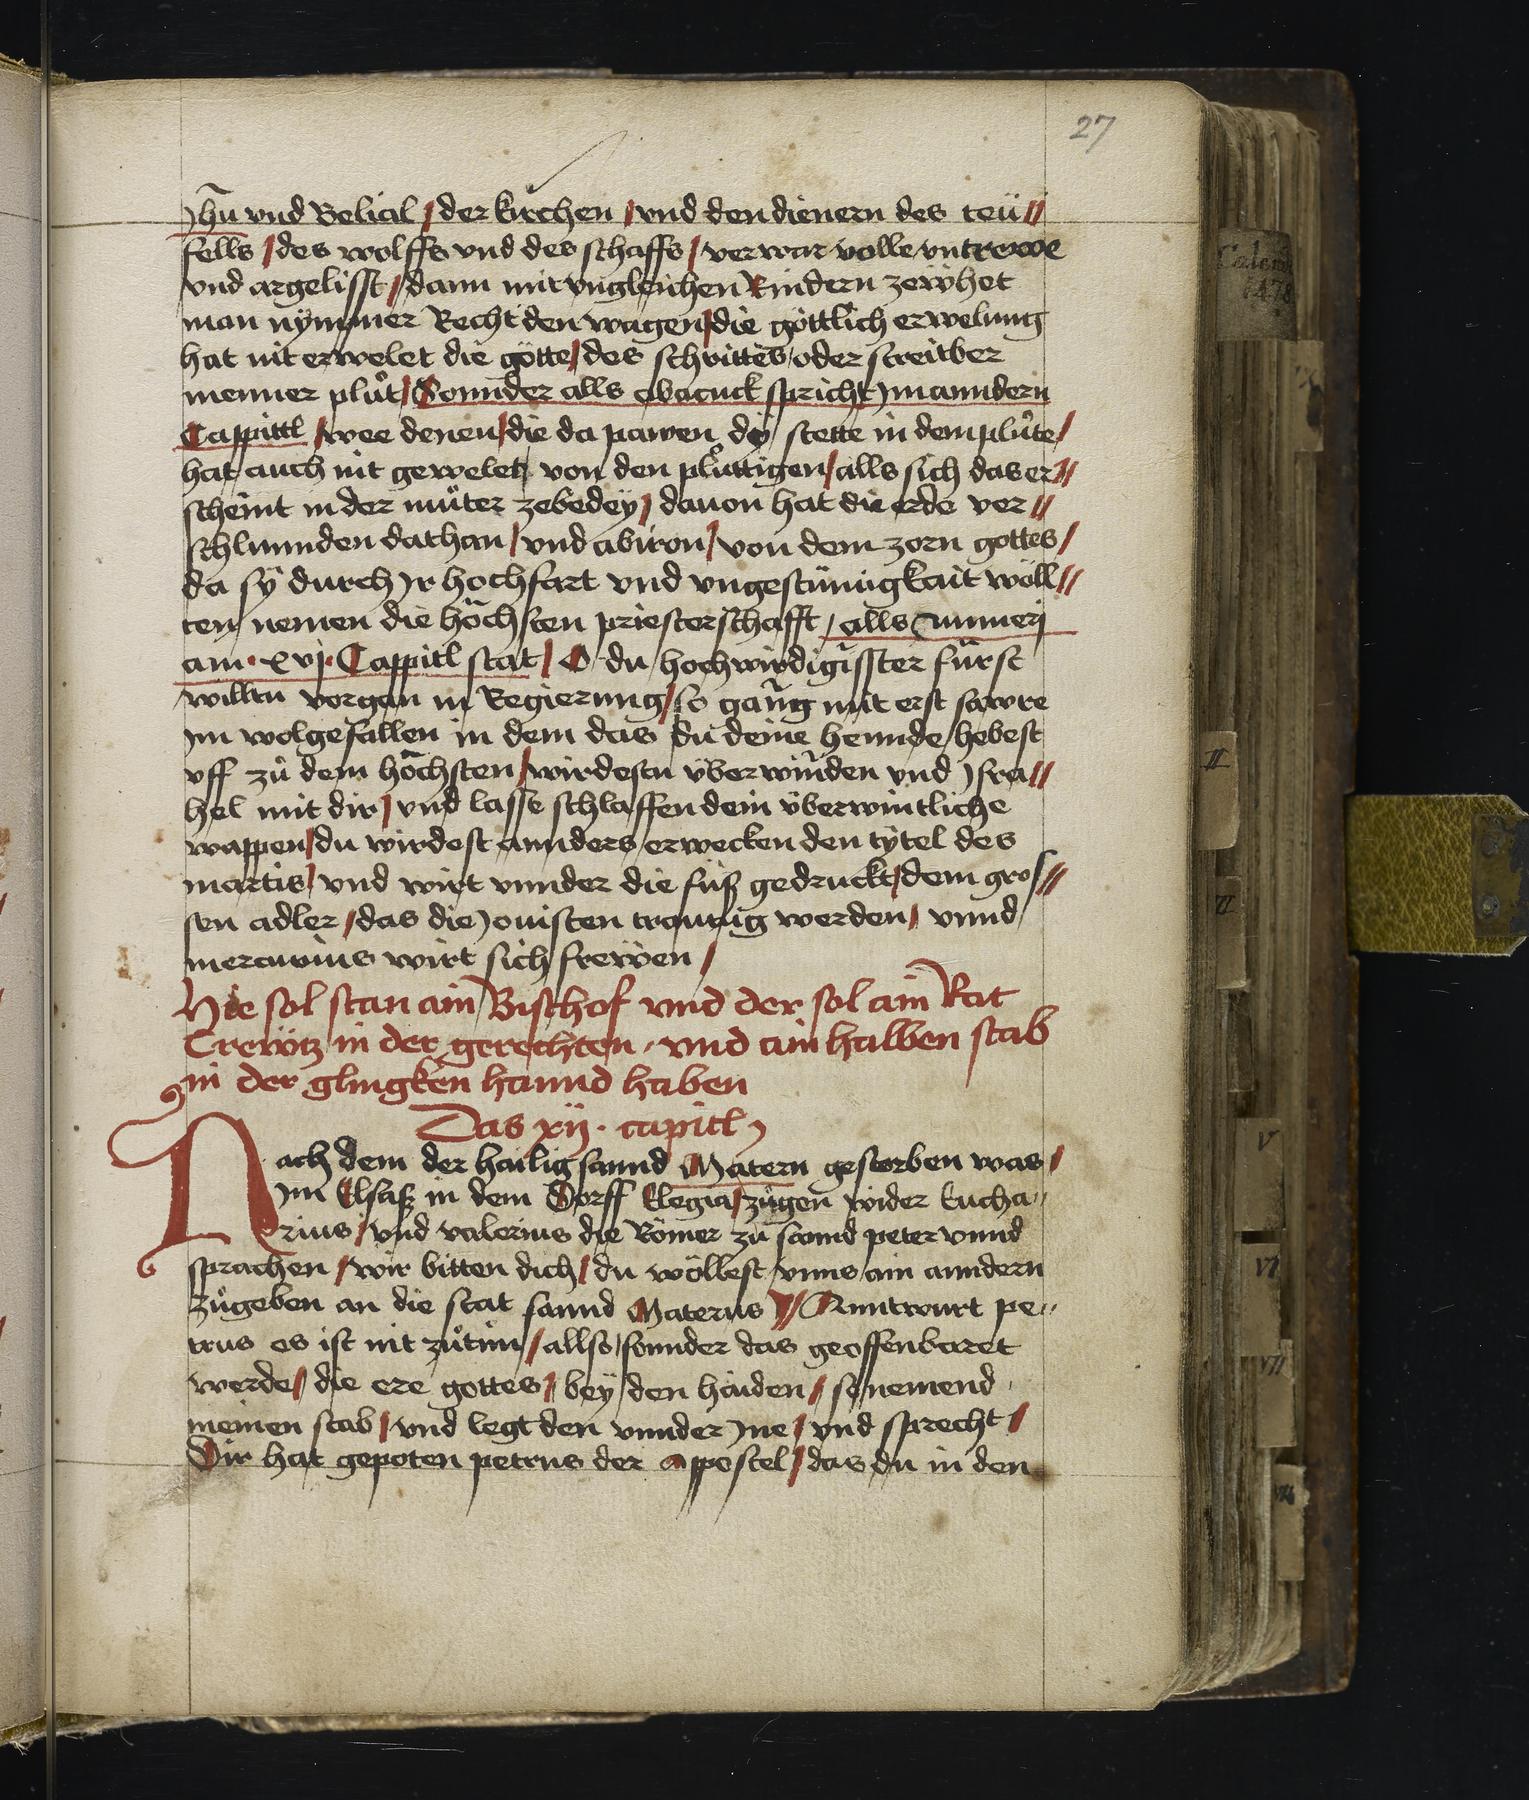 27
Jhũ vnd Belial / der kirchen / vnd den dienern des teü//
fells / des wolffs vnd des schaffs / verwar volle vntrewe
vnd argelisst / dann mit vngleichen Rindern zewhet
man nymmer Recht den wagen / die göttlich erwelung
hat nit erwelet die götte / des schrittes oder streitber
menner plůt / Sonnder alls abacuck spricht Jm anndern
Cappittl / wee denen / die da pawen dÿ stette in dem plůte /
hat auch nit gewelet von den plůttigen / alls sich das er//
scheint in der můter zebedey / dauon hat die erde ver//
schlunnden dathan / vnd abiron / von dem zorn gottes /
da sÿ durch Jr hochfart vnd vngestümigkait wöll//
ten nemen die höchsten priesterschafft / alls Numerj
am · xvj · Cappitl stat / O du hochwirdigisster fürst
willtu vorgan in Regierung / so ganng mit erst sawre
Jm wolgefallen in dem das du deine hennde hebest
vff zů dem höchsten / wirdestu überwinden vnd Jsra//
hel mit dir / vnd lasse schlaffen dein überwintliche
wappen / du wirdest annders erwecken den tÿtel des
martis / vnd wirt vnnder die füß gedruckt / dem gros//
sen adler / das die Jouisten traurig werden / vnnd
mercurius wirt sich frewen /
Hie sol stan ain Bischof vnd der sol ain Rat
Crewtz in der gerechten · vnd ain halben stab
in der glingken hannd haben
Das xij · capitl
Nach dem der hailig sannd Matern gestorben was /
Jm Elsaß in dem Dorff Elegia / zugen wider Eucha//
rius / vnd valerius die Römer zu sannd peter vnnd
sprachen / wir bitten dich / du wöllest vnns ain anndern
zůgeben an die stat sannd Maternus // Anntwurt pe//
trus es ist nit zůtun / allso sonnder das geoffenbaret
werde / die ere gottes / bey den haiden / so nemend
meinen stab / vnd legt den vnnder Jne / vnd sprecht /
Dir hat gepoten petrus der appostel / das du in den